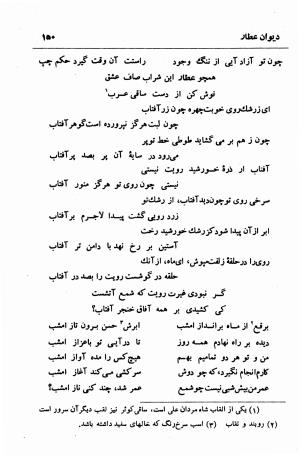 ۱۵۰
دیوان عطار
چون تو آزاد آیی از ننگ وجود
راستت آن وقت گیرد حکم چپ
همچو عطار این شراب صاف عشق
نوش کن از دست ساقی عرب۱
ای زرشک روی خوبت چهره چون زر آفتاب
چون لبت هرگز نپرورده است گوهر آفتاب
چون ز هم بر می گشاید طوطی خط تو پر
می‌رود در سایهٔ آن پر بصد پر آفتاب
آفتاب ار ذرهٔ خورشید رویت نیستی
نیستی چون روی تو هرگز منور آفتاب
سرخی روی تو چون دید آفتاب، از رشک تو
زرد رویی گشت پیدا لاجرم بر آفتاب
ابر از آن پیدا شود کز رشک خورشید رخت
آستین بر رخ نهد با دامن تر آفتاب
روی را در حلقهٔ زلفت مپوش، ای ماه، از آنک
حلقه در گوشست رویت را بصد در آفتاب
گر نبودی غیرت رویت که شمع آنشست
کی کشیدی بر همه آفاق خنجر آفتاب؟
برقع۲ از ماه برانداز امشب
ابرش۳ حسن برون تاز امشب
دیده بر راه نهادم همه روز
تا درآیی تو باعزاز امشب
من و تو هر دو تمامیم بهم
هیچ کس را مده آواز امشب
کارم انجام نگیرد، که چو دوش
سرکشی می‌کند آغاز امشب
عمر من بیش شبی نیست چو شمع
عمر شد، چند کنی ناز امشب؟
(۱) یکی از القاب شاه مردان علی است، ساقی کوثر نیز لقب دیگر آن سرور است
(۲) روبند و نقاب (۳) اسب سرخ رنگ که خالهای سفید داشته باشد.